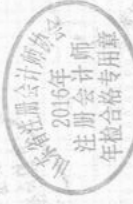 省注册会计师协会
2016年
注册会计师
年检合格专用章